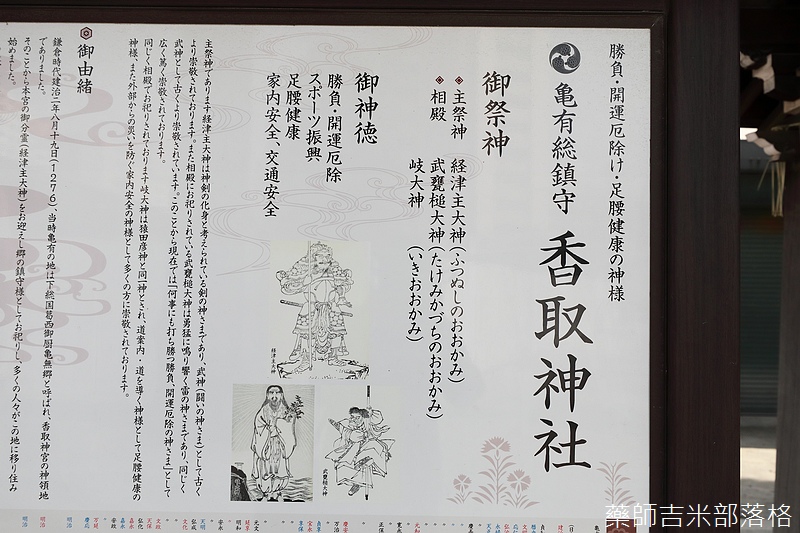 勝負・開運厄除け・足腰健康の神様
亀有総鎮守 香取神社
御祭神
主祭神 経津主大神(ふつぬしのおおかみ)
相殿 武甕槌大神(たけみかづちのおおかみ)
岐大神 (いきおおかみ)
御神徳
勝負、開運厄除
スポーツ振興
足腰健康
家内安全、交通安全
主祭神であります経津主大神は神剣の化身と考えられている剣の神さまであり、武神(闘いの神さま)として古く
より崇敬されております。また相殿にお祀りされている武甕槌大神は勇猛に鳴り響く雷の神さまであり、同じく
武神として古くより崇敬されています。このことから現在では「何事にも打ち勝つ勝負、開運厄除の神さま」として
広く篤く崇敬されております。
同じく相殿でお祀りされております岐大神は猿田彦神と同一神とされ、道案内・道を導く神様として足腰健康の
神様、また外部からの災いを防ぐ家内安全の神様として多くの方に崇敬されております。
御由緒
鎌倉時代建治二年八月十九日(1276)、当時亀有の地は下総国葛西御厨亀無郷と呼ばれ、香取神宮の神領地
でありました。
そのことから本宮の御分霊(経津主大神)をお迎えし郷の鎮守様としてお祀りし、多くの人々がこの地に移り住み
始めました。
経津主大神
武甕槌大神
藥師吉米部落格